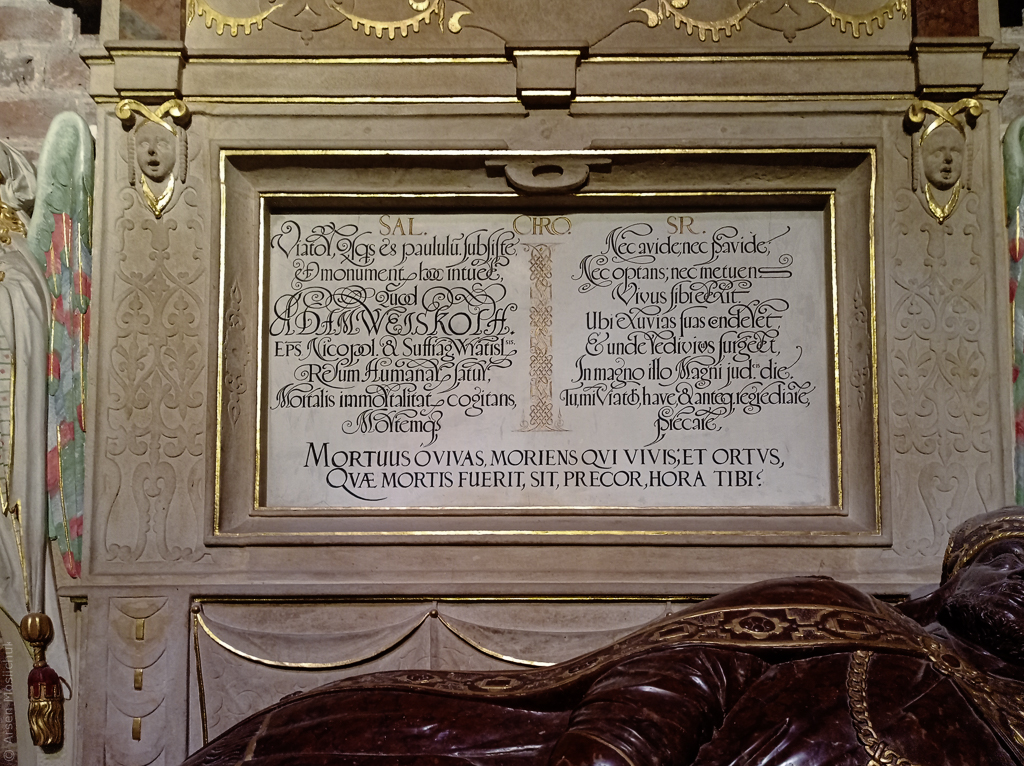 SAL. CIRO SR.
Viator, Ags es paululū subsiste,
& monument. hoc intuere,
Quod
ADAM WEISKOPF.
EPS Nicopol. & Suffrag Wratisl sis.
Rerum Humanar. satur,
Mortalis immortalitat. cogitans,
Mortemq3
Nec avide, nec pavide,
Nec optans; nec metuens
Vivus sibi erexit
Ubi exuvias suas onderet,
E unde redivivus surget,
In magno illo Magni jud. die.
Tu, mi Viator, have & anteq. regrediare,
precare,
MORTUUS O VIVAS, MORIENS QVI VIVIS; ET ORTVS,
QVÆ MORTIS FUERIT, SIT, PRECOR, HORA TIBI?